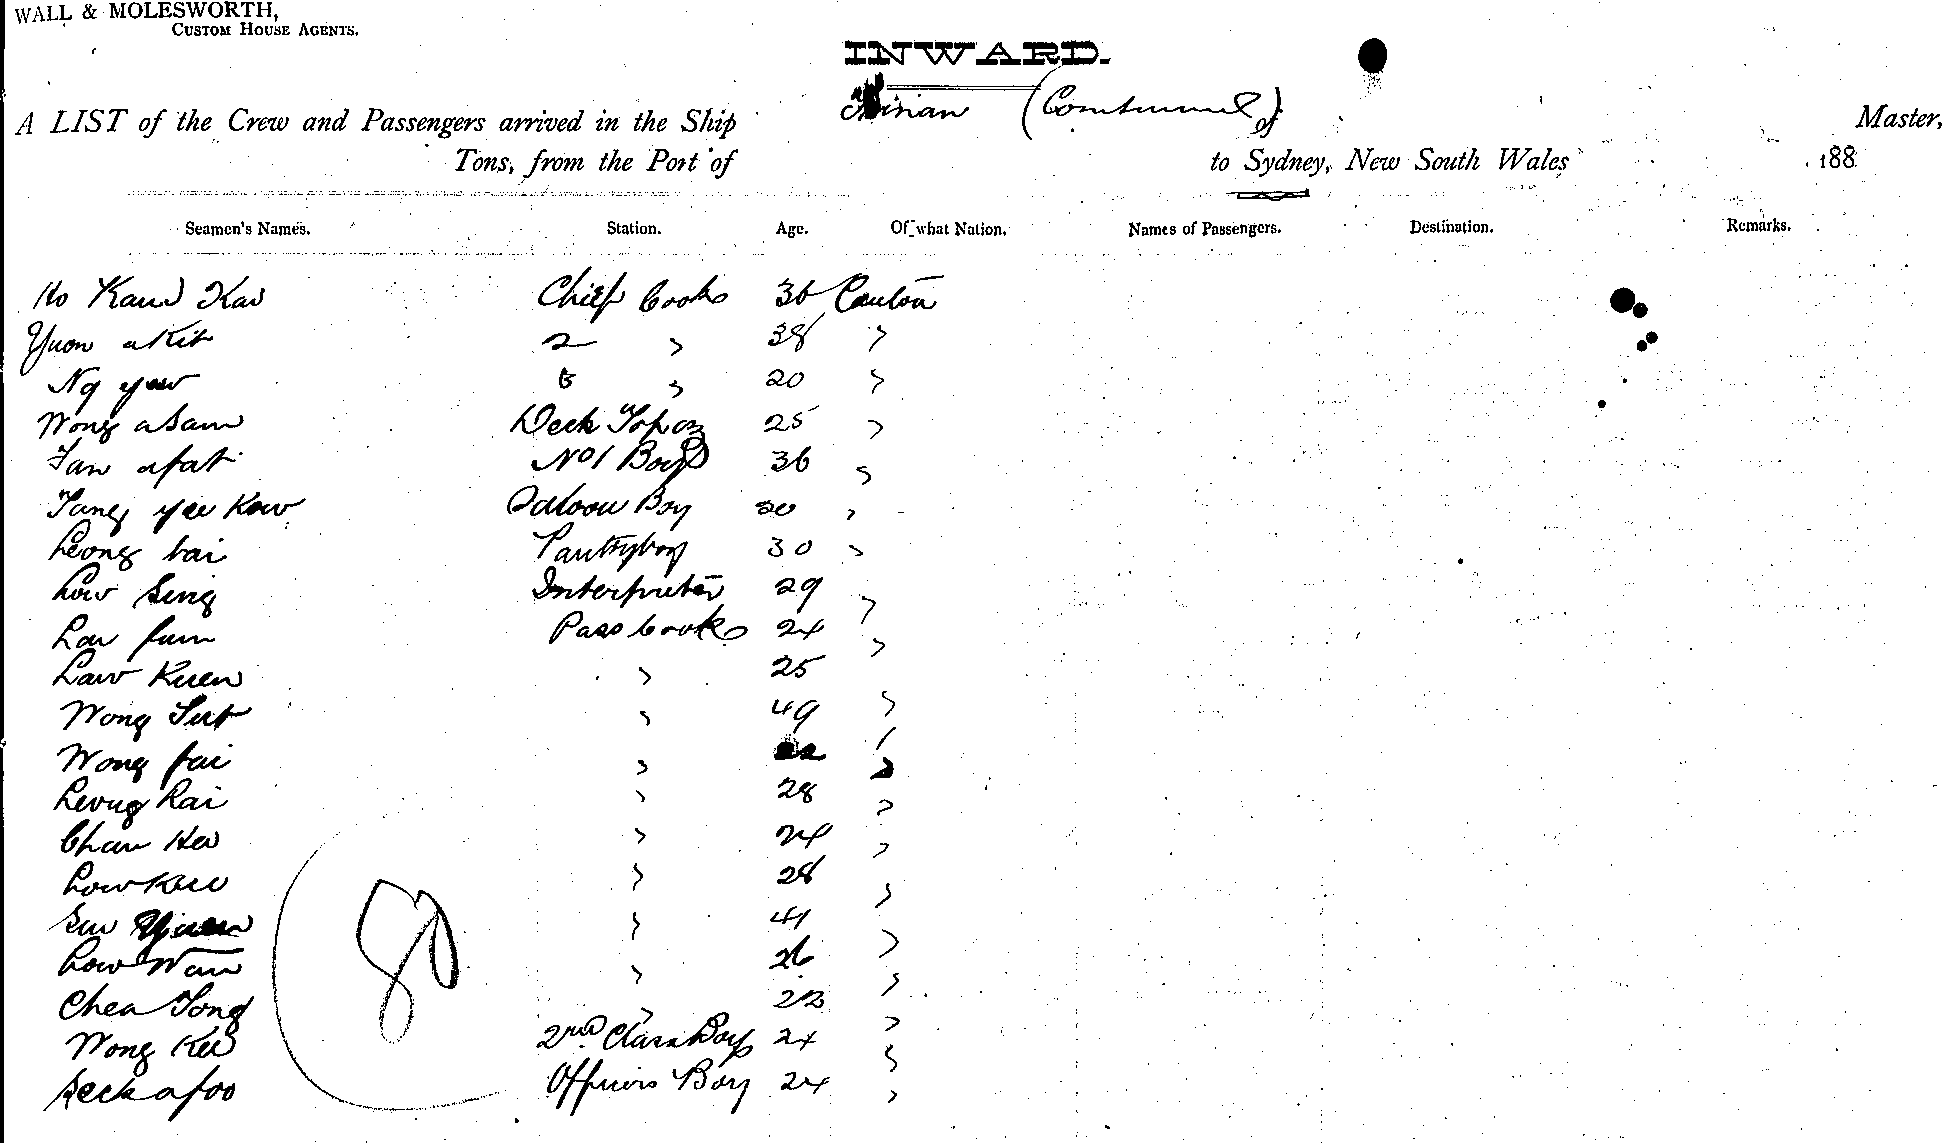 WALL & MOLESWORTH,
CUSTOM HOUSE AGENTS.
INWARD.
(Continued)
A LIST of the Crew and Passengers arrived in the Ship of Master,
Tons, from the Port of to Sydney, New South Wales 188
Seamen's Names. Station. Age. Of what Nation. Names of Passengers. Destination. Remarks.
Ho Kaw Kaw Chief Cook 36 Canton
Yuon akit 2 " 38 "
Ng yew 3 " 20 "
Wong asam Deck Topaz 25 "
Tan afat No 1 Boy 36 "
Tang yee Kow Saloon Boy 20 "
Leong tai Pantryboy 30 "
Low Sing Interpreter 29 "
Low fum Pass Cook 24 "
Law Kuen " 25
Wong Sut " 49 "
Wong fai " "
Leong Kai " 28 "
Chan Hee " 24 "
Low Kee " 28 "
Sew Yuen " 41 "
Low Wan " 26 "
Chea Tong " 22 "
Wong Kee 2nd Class Boy 24 "
Seck afoo Officers Boy 24 "
80